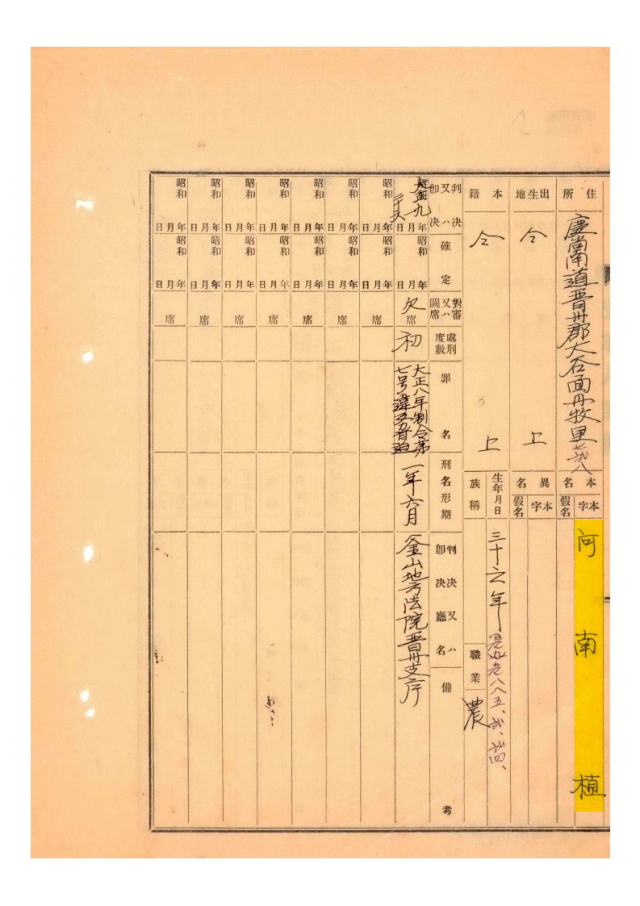 住所
慶尚南道晋州郡大谷面丹牧里
本名
本字
假名
河南植
出生地
仝上
異名
本字
假名
本籍
仝上
生年月日
三十六年
族稱
職業
農
判決又ハ卽決
確定
對審又ハ闕席
處刑度數
罪名
刑名刑期
判決又ハ卽決廳名
備考
大正九
年月日
昭和
年月日
欠席
初
大正八年制令第
七号違
一年六月
釜山地方法院晋州支庁
昭和
年月日
昭和
年月日
席
昭和
年月日
昭和
年月日
席
昭和
年月日
昭和
年月日
席
昭和
年月日
昭和
年月日
席
昭和
年月日
昭和
年月日
席
昭和
年月日
昭和
年月日
席
昭和
年月日
昭和
年月日
席